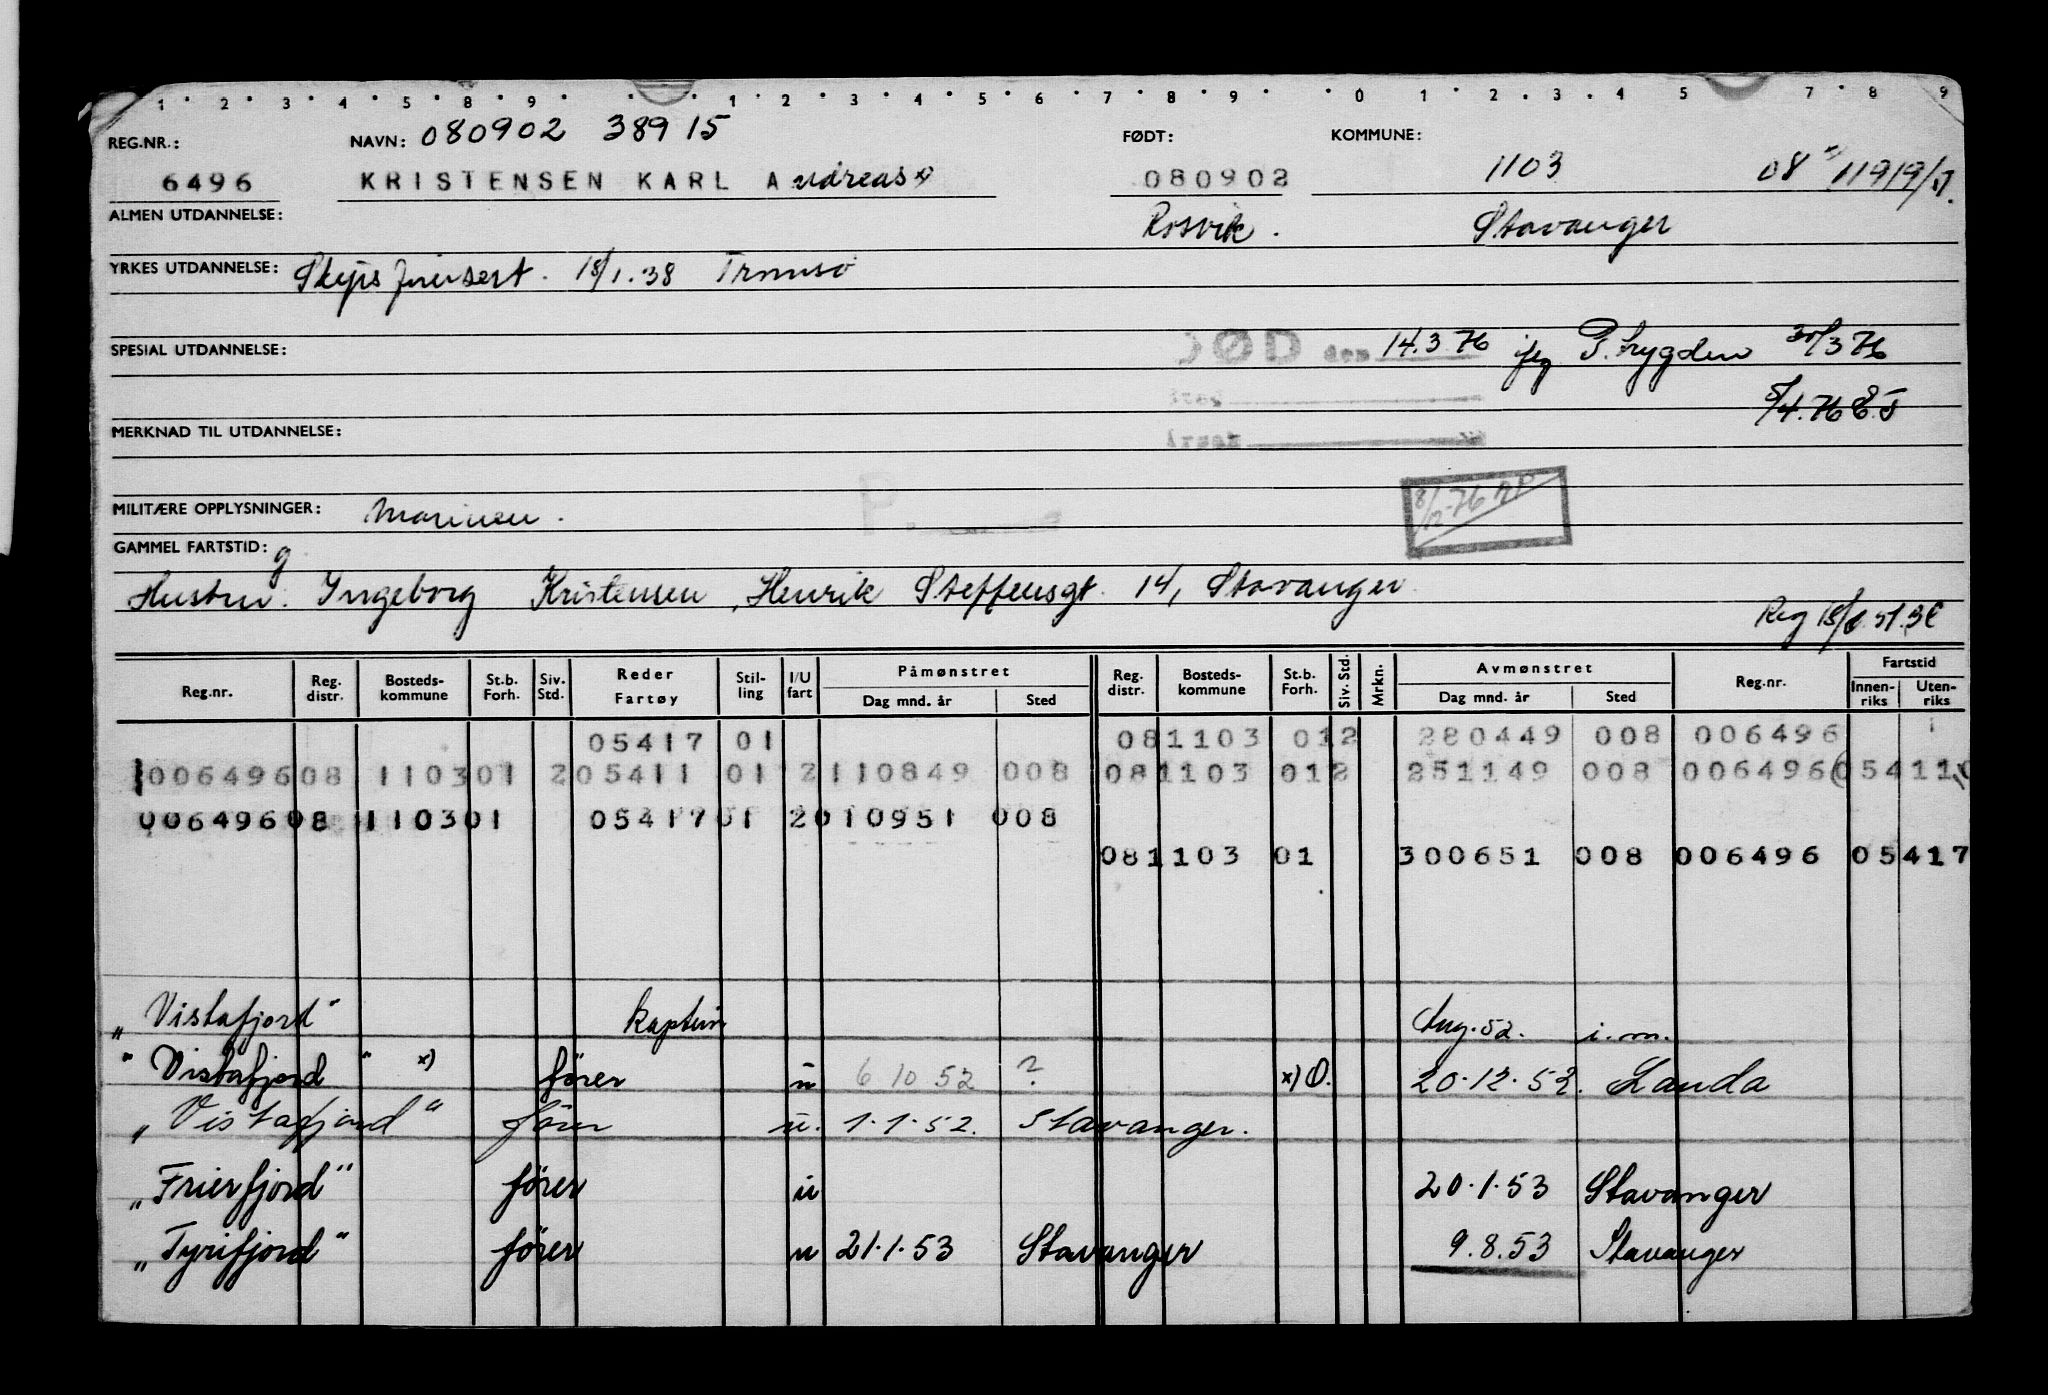 1 2 3 4 5 8 9 1 2 3 4 5 6 7 8 9 0 1 2 3 4 5 7 8 9
REG.NR.: NAVN: 080902 38915 FØDT: KOMMUNE:
6496 KRISTENSEN KARL Andreas x) 080902 1103 08
ALMEN UTDANNELSE: Rosvik. Stavanger
YRKES UTDANNELSE: Skipsførersert. 18/1.38 Tromsø
SPESIAL UTDANNELSE: DØD den 14.3.76 P. Lygden 30/3 76
Sted 5/4.76
Årsak
MERKNAD TIL UTDANNELSE:
P.
MILITÆRE OPPLYSNINGER: Marinen. 8/12-76
GAMMEL FARTSTID:
Hustru: Ingeborg Kristensen, Henrik Steffensgt. 14, Stavanger.
Reg
Reg.nr. Reg. distr. Bosteds-kommune St.b. Forh. Siv. Std. Reder Fartøy Stil-ling I/U fart Påmønstret Dag mnd. år Sted Reg. distr. Bosteds-kommune St.b. Forh. Siv. Std. Mrkn. Avmønstret Dag mnd. år Sted Reg.nr. Fartstid Innen-riks Uten-riks
05417 01 081103 012 280449 008 006496
00649608 110301 205411 01 2110849 008 081103 012 251149 008 006496 05411
00649608 110301 05417 01 2010951 008
081103 01 300651 008 006496 05417
"Vistafjord" kaptein Aug. 52. i.m.
"Vistafjord" x) fører u 6 10 52 ? x) O. 20.12.52. Landa
"Vistafjord" fører u. 1.1.52. Stavanger.
"Frierfjord" fører u 20.1.53 Stavanger
"Tyrifjord" fører u 21.1.53 Stavanger 9.8.53 Stavanger